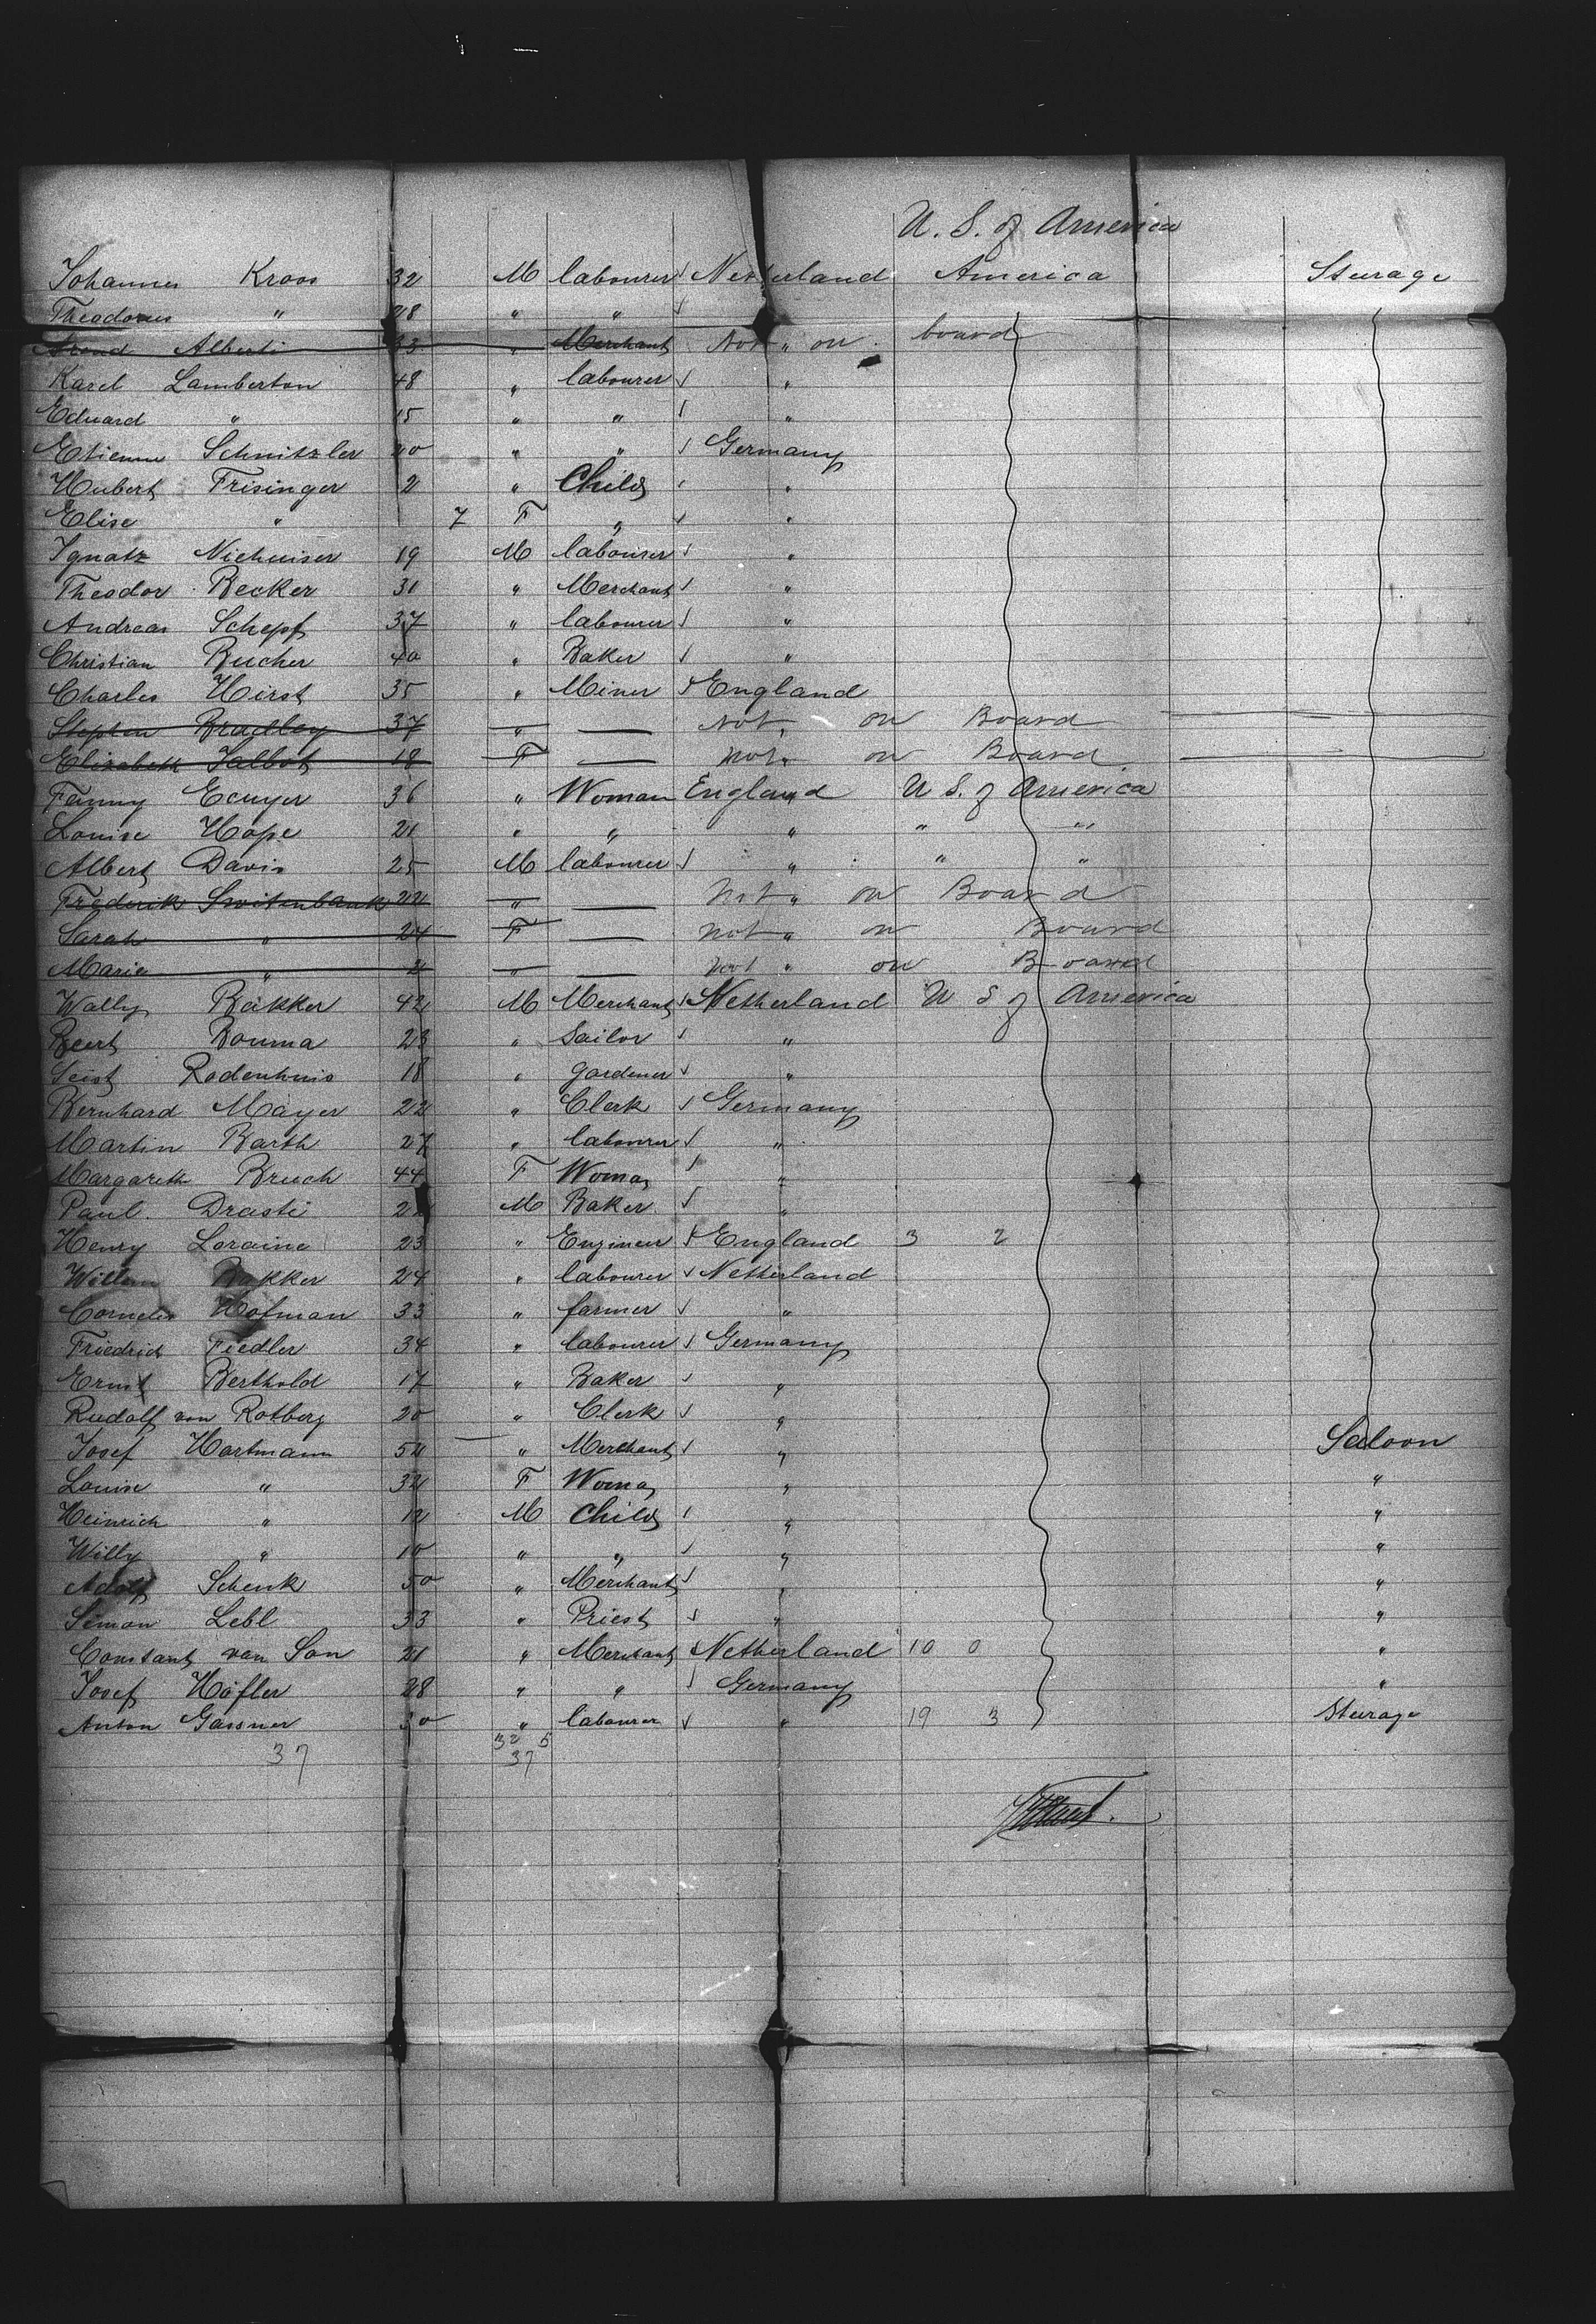 U. S. of America
Johannes Kroos 32 M labourer Netherland America Steurage
Theodorus " 28 " "
Arend Alberti 33 " Merchant Not " on board
Karel Lamberton 48 " labourer "
Eduard " 15 " " "
Etienne Schnitzler 20 " " Germany
Hubert Frisinger 2 " Child "
Elise " 7 F " "
Ignatz Niehuiser 19 M labourer "
Theodor Becker 31 " Merchant "
Andreas Schepf 37 " labourer "
Christian Bucher 40 " Baker "
Charles Hirst 35 " Miner England
Stephen Bradley 37 " — Not " on Board
Elizabeth Talbot 18 F — Not " on Board
Fanny Ecuyer 36 " Woman England U S. of America
Louise Hope 21 " " " " "
Albert Davis 25 M labourer " " "
Frederik Switenbank 22 " — Not " on Board
Sarah " 24 F — Not " on Board
Marie " 2 " — Not " on Board
Wally Bakker 42 M Merchant Netherland U S of America
Beert Bouma 23 " Sailor "
Seist Rodenhuis 18 " gardener "
Bernhard Mayer 22 " Clerk Germany
Martin Barth 27 " labourer "
Margareth Bruch 44 F Woman "
Paul Drasti M Baker "
Henry Loraine 23 " Engineer England 3 2
Willem Bakker 24 " labourer Netherland
Cornelis Hofman 33 " farmer "
Friedrich Fiedler 34 " labourer Germany
Ernst Berthold 17 " Baker "
Rudolf von Rotberg 20 " Clerk "
Josef Hartmann 52 " Merchant " Saloon
Louise " 32 F Woman " "
Heinrich " 12 M Child " "
Willy " 10 " " " "
Adolf Schenk 50 " Merchant " "
Simon Lebl 33 " Priest " "
Constant van Son 21 " Merchant Netherland 10 0 "
Josef Höfler 28 " " Germany "
Anton Gassner 30 " labourer " 19 3 Steurage
32 5
37 37